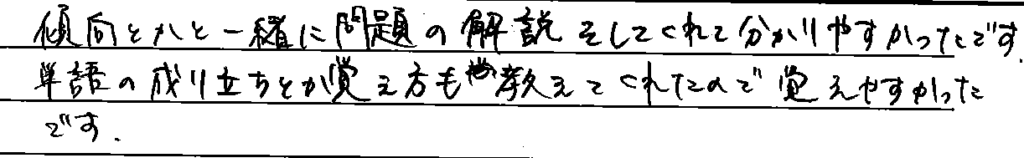 傾向とかと一緒に問題の解説をしてくれて分かりやすかったです.
単語の成り立ちとか覚え方も教えてくれたので覚えやすかった
です.